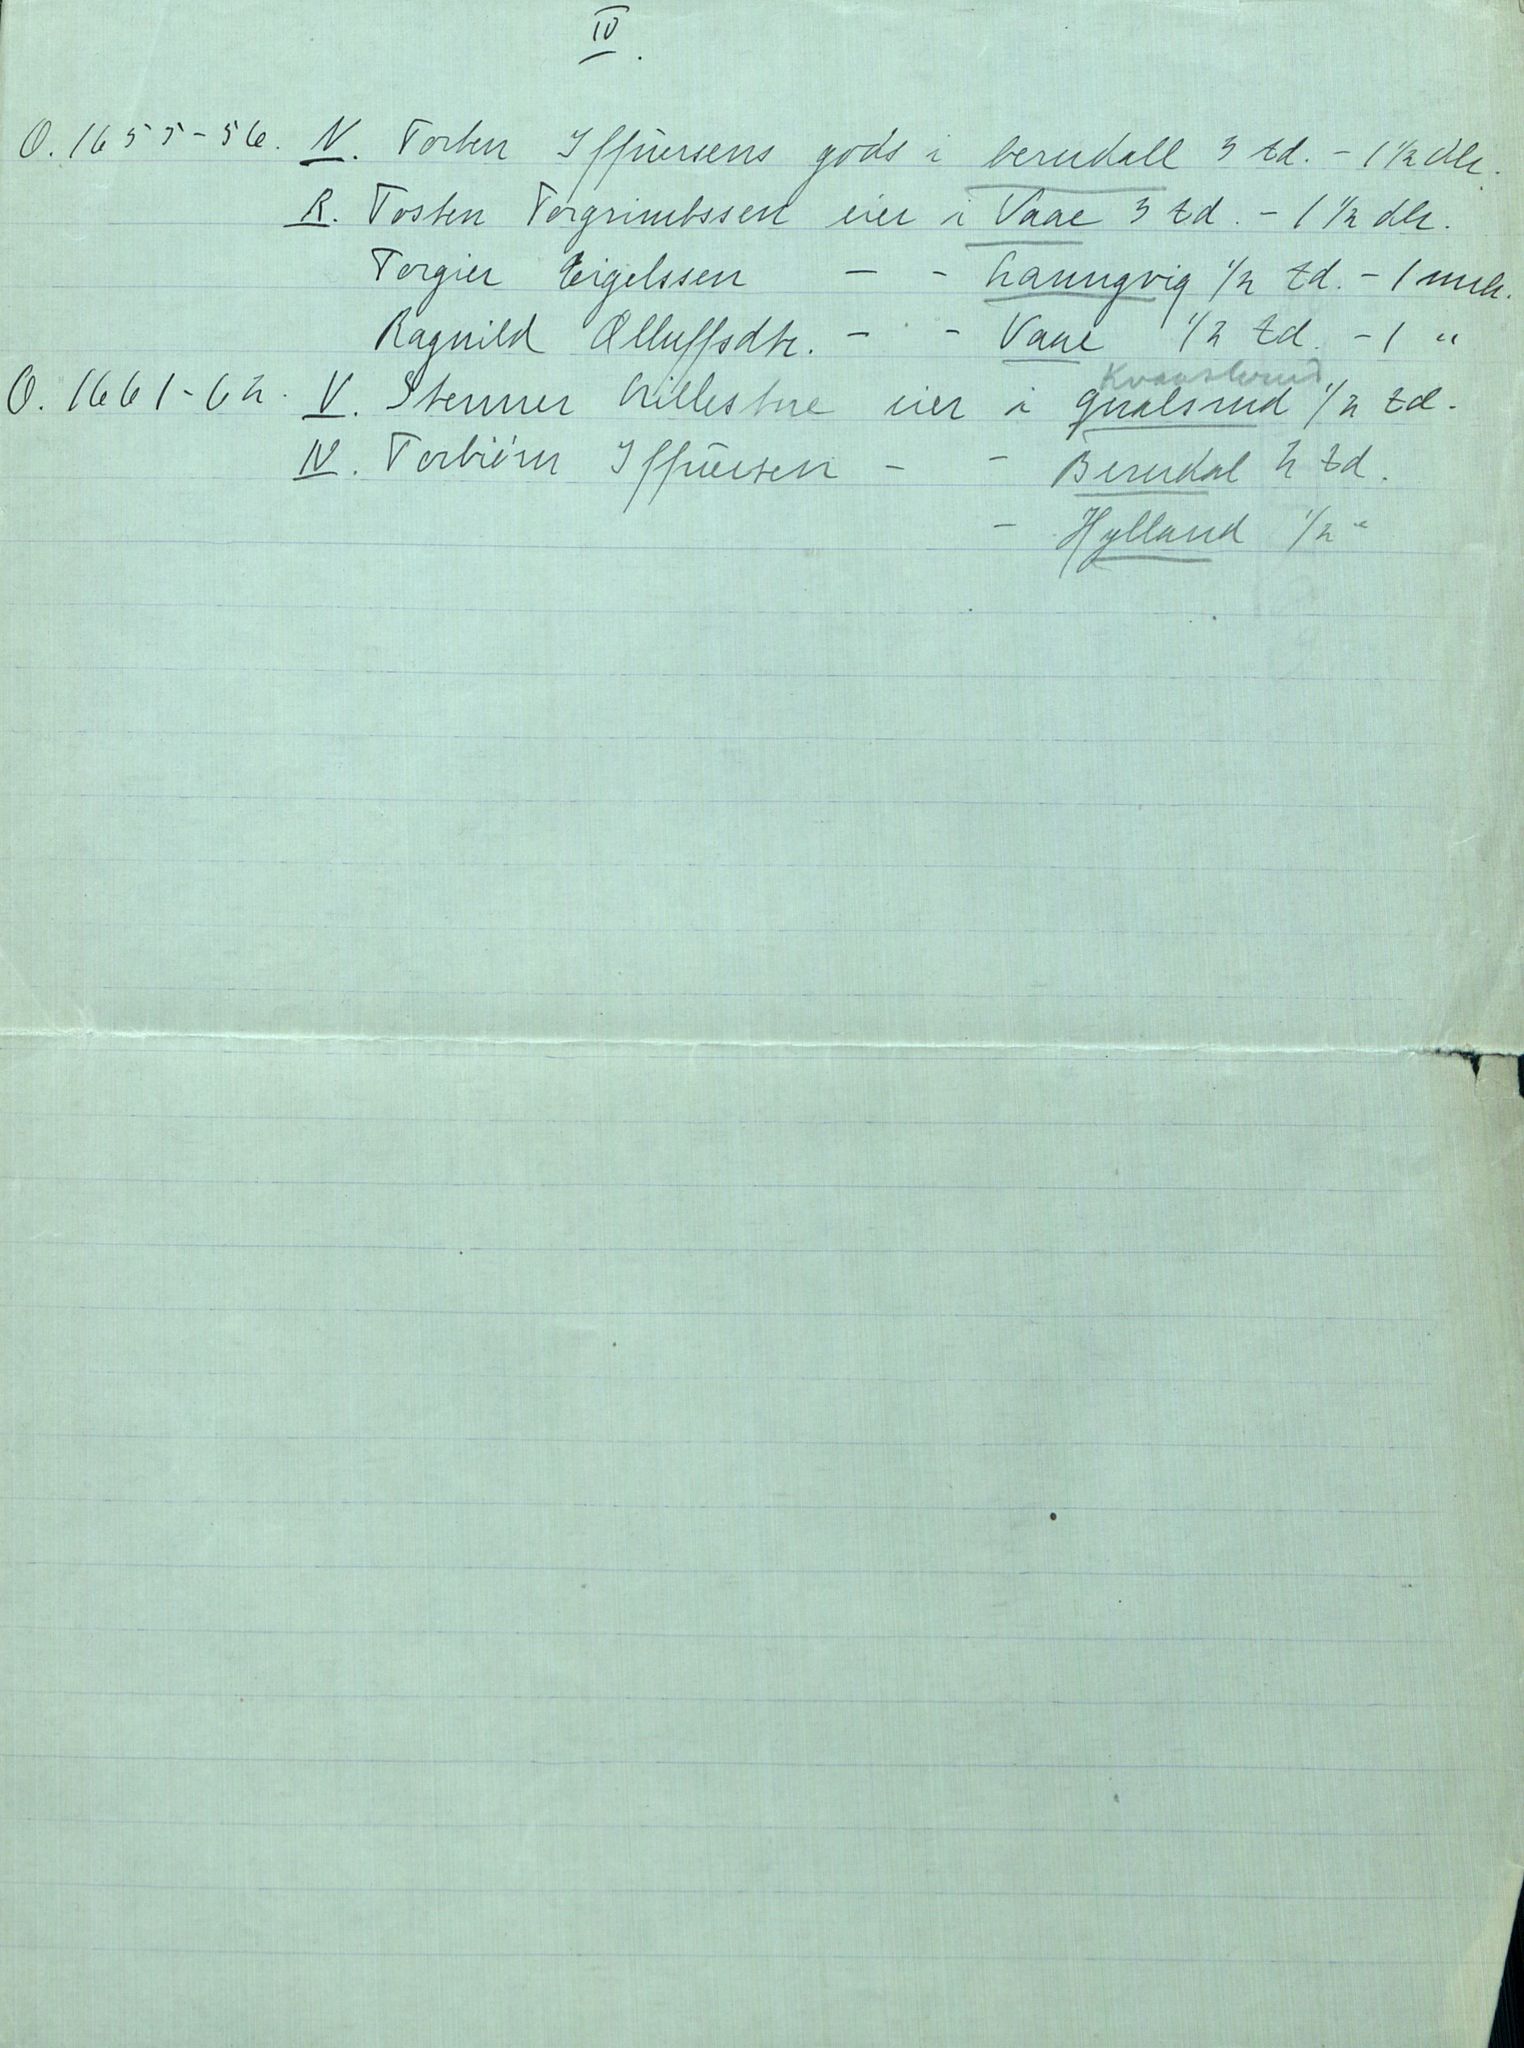 IV.
O. 1655-56. N. Torben Iffuersens gods i berudall 3 td. - 1 1/2 dlr.
R. Tosten Torgrimbssen eier i Vaae 3 td. - 1 1/2 dlr.
Torgier Eigelssen - - Langvig 1/2 td. - 1 mrk.
Ragnild Olluffsdtr. - - Vaae 1/2 td. - 1 "
O. 1661-62. V. Stenner Lillestue eier i gualsrud 1/2 td.
N. Torbiörn Iffuersen - - Berudal 2 td.
- Hylland 1/2 "